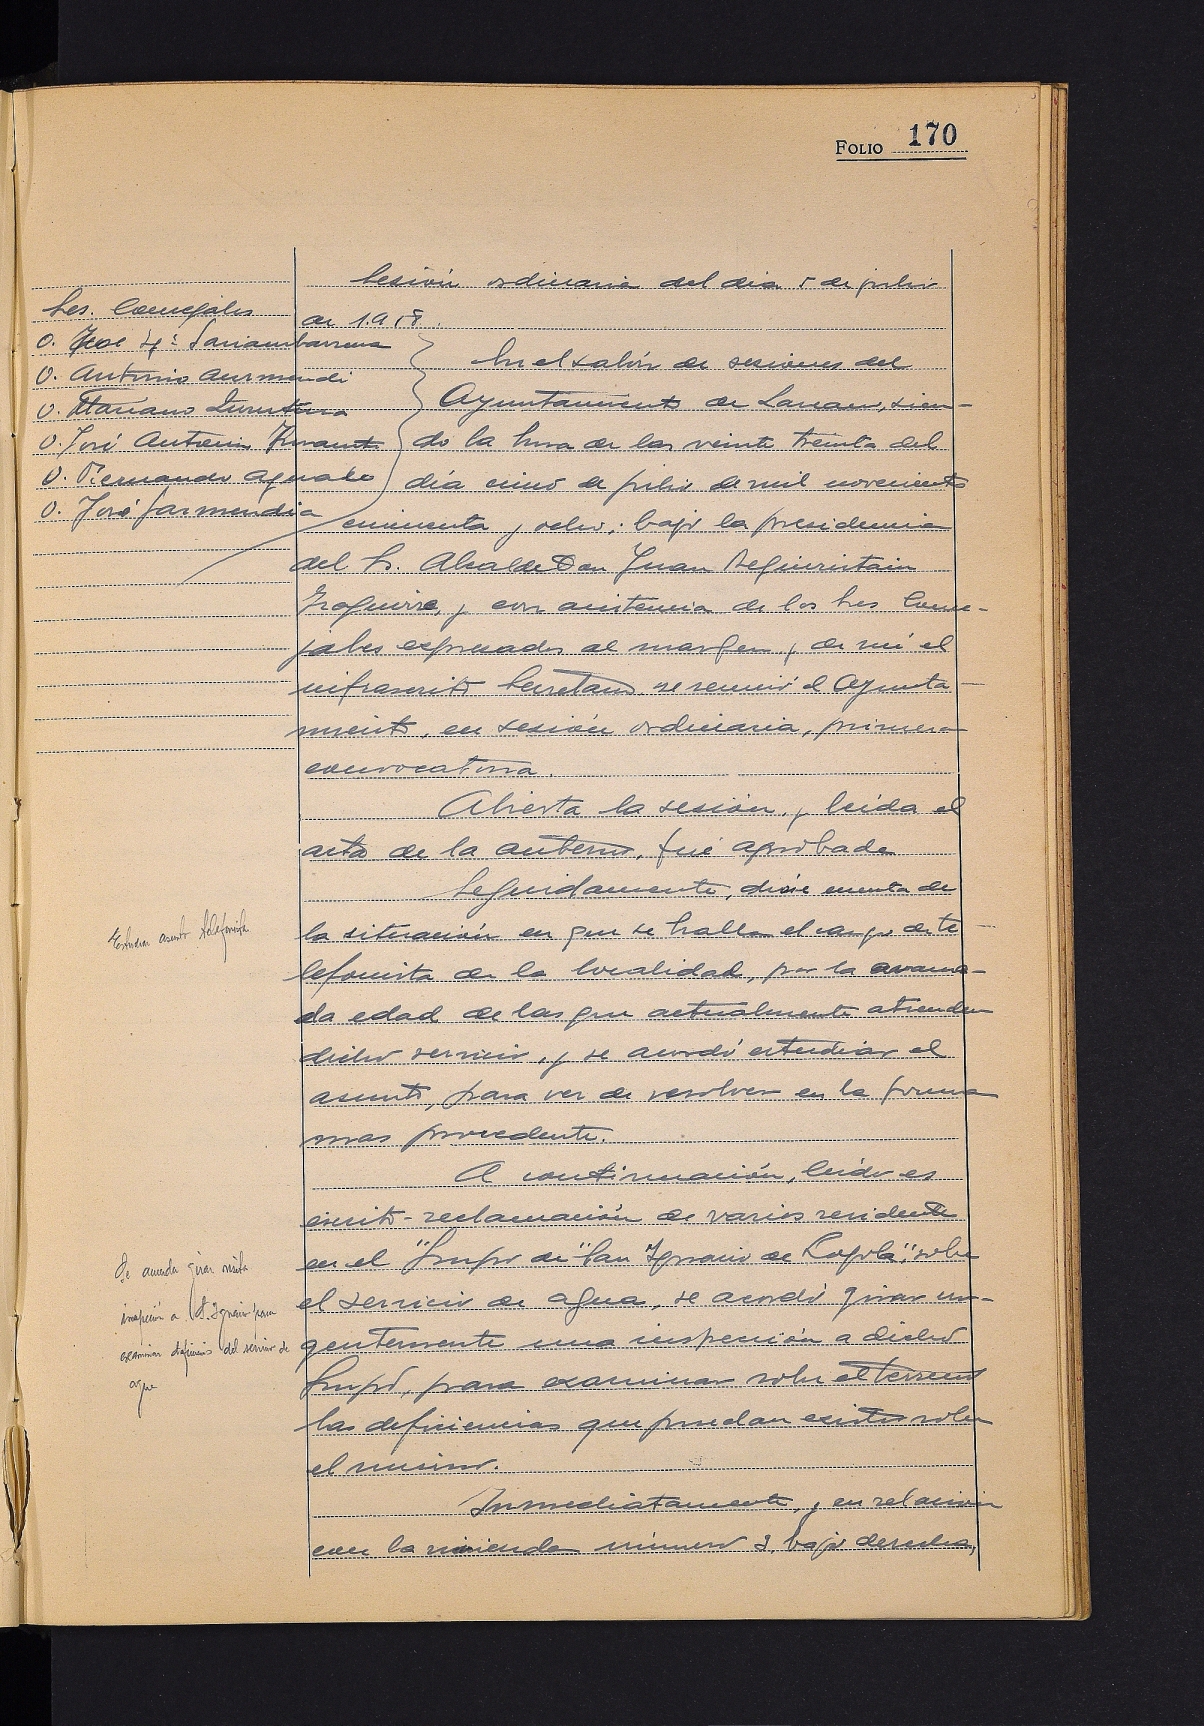 FOLIO 170
Sesión ordinaria del día 5 de julio
de 1.958.
Sres. Concejales
D. José Mª Sariambarrena
D. Antonio Aurmendi
D. Mariano
D. José Antonio
D. Fernando Aguado
D. José Garmendia
En el salón de sesiones del
Ayuntamiento de Lazcano, sien-
do la hora de las veinte treinta del
día cinco de julio de mil novecientos
cincuenta y ocho; bajo la presidencia
del Sr. Alcalde Don Juan Reguiristain
Izaguirre, y con asistencia de los Sres Conce-
jales expresados al margen, y de mí el
infrascrito Secretario, se reunió el Ayunta-
miento, en sesión ordinaria, primera
convocatoria.
Abierta la sesión, y leída el
acta de la anterior, fué aprobada
Estudiar asunto telefonista
Seguidamente, dióse cuenta de
la situación en que se halla el cargo de te-
lefonista de la localidad, por la avanza-
da edad de las que actualmente atienden
dicho servicio, y se acordó estudiar el
asunto, para ver de resolver en la forma
mas procedente.
Se acuerda girar visita
inspección a S. Ignacio para
examinar deficiencias del servicio de
agua
A continuación, leído es
escrito-reclamación de varios residente
en el "Grupo de "San Ignacio de Loyola", sobre
el servicio de agua, se acordó girar ur-
gentemente una inspección a dicho
Grupo, para examinar sobre el terreno
las deficiencias que puedan existir sobre
el mismo.
Inmediatamente, y en relación
con la vivienda número 3, bajo derecha,